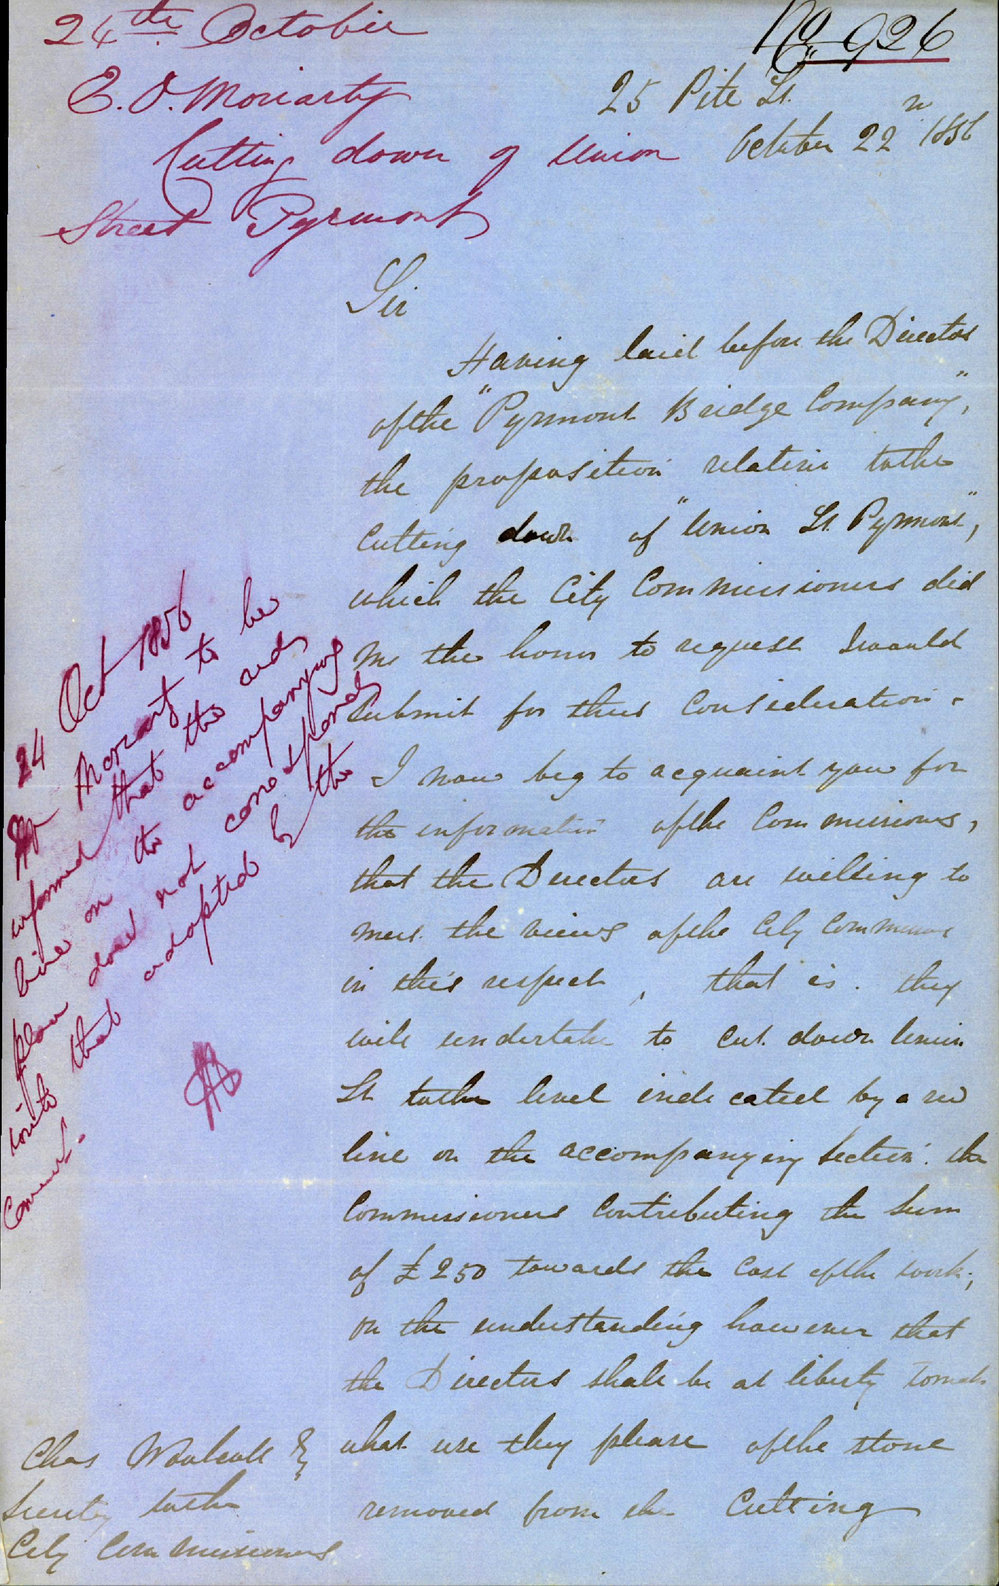 24th October
No. 926
E. O. Moriarty
Cutting down of Union
Street Pyrmont
25 Pitt St.
October 22n 1856
Sir
Having laid before the Directors
of the "Pyrmont Bridge Company",
the proposition relative to the
Cutting down of "Union St. Pyrmont",
which the City Commissioners did
me the honor to request I would
submit for their Consideration.
I now beg to acquaint you for
the information of the Commissioners,
that the Directors are willing to
meet the views of the City Commissioners
in this respect, that is. they
will undertake to cut down Union
St to the level indicated by a red
line on the accompanying Section. the
Commissioners Contributing the Sum
of £250 towards the Cost of the work;
on the understanding however that
the Directors shall be at liberty to make
what use they please of the stone
removed from the Cutting
24 Oct 1856
Mr Moriarty to be
informed that the red
line on the accompanying
plan does not correspond
with that adopted by the
Chas Woolcott Esq
Secretary to the
City Commissioners